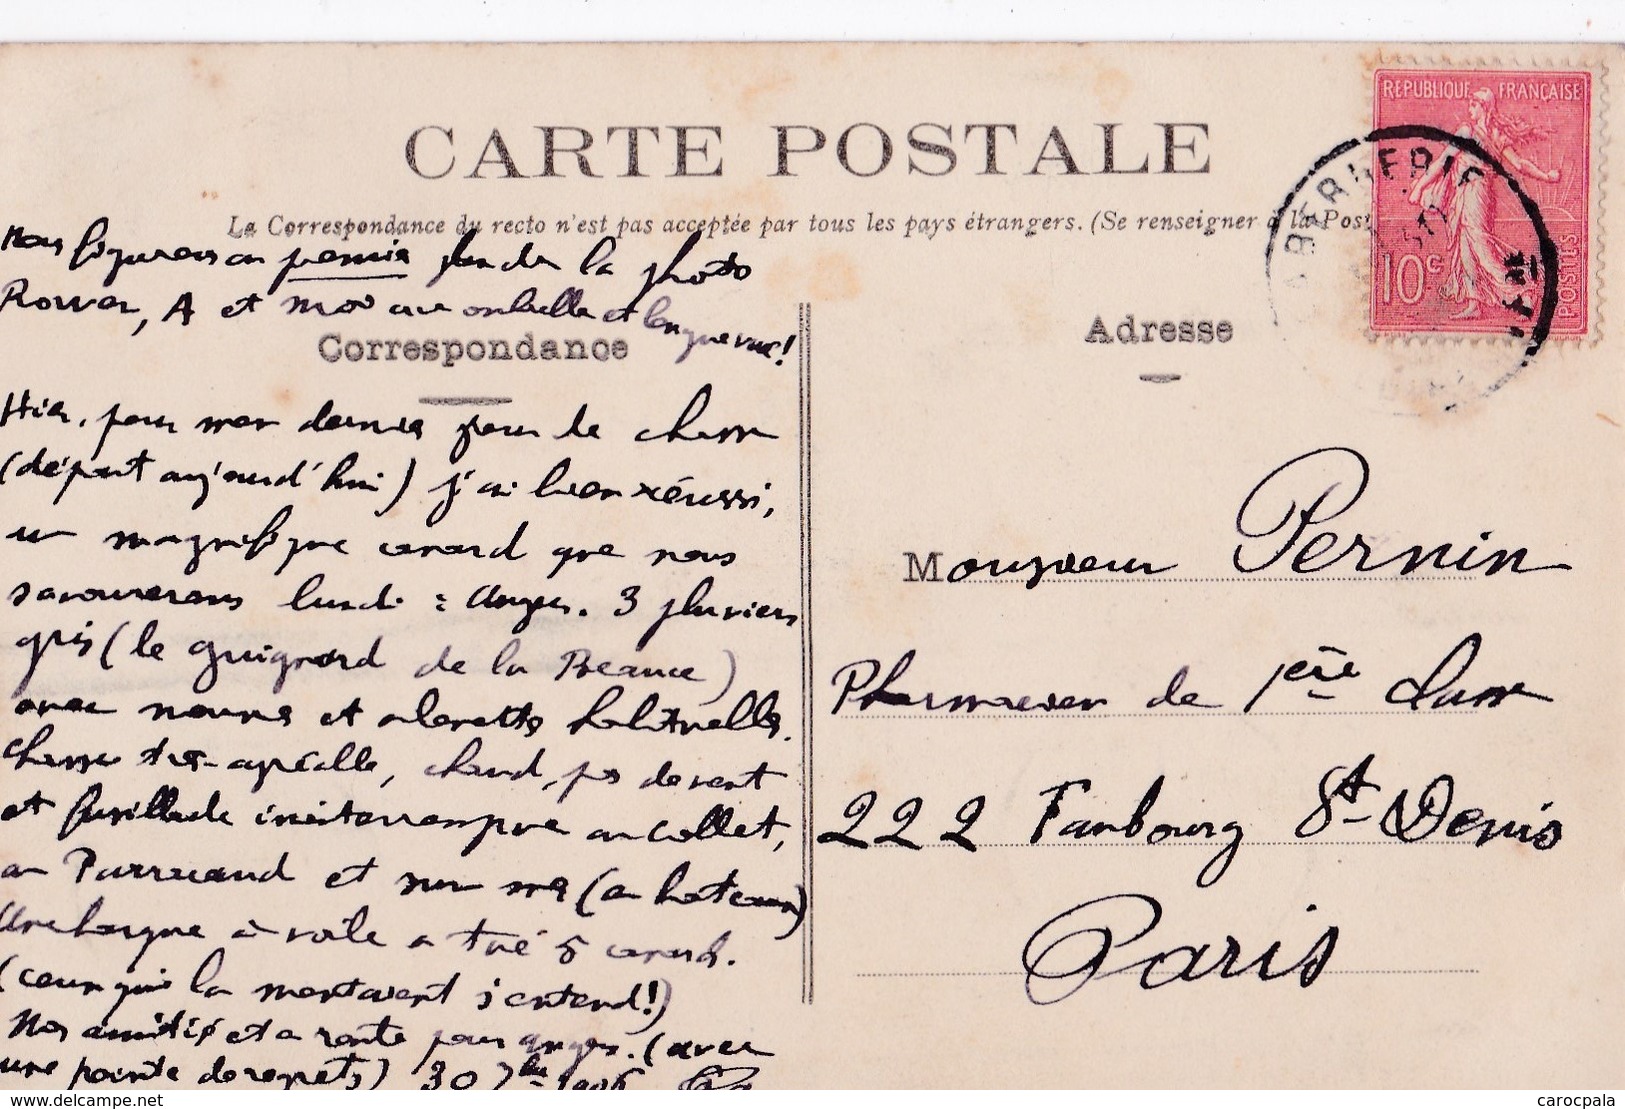 CARTE POSTALE
La Correspondance du recto n'est pas acceptée par tous les pays étrangers. (Se renseigner à la Post
REPUBLIQUE FRANÇAISE
10c
POSTES
Nous figurons en premier plan de la photo
A et moi avec ombrelle et longue vue!
Correspondance
Hier, pour mon dernier jour de chasse
(départ aujourd'hui) j'ai bien réussi,
un magnifique canard que nous
savourerons lundi à Angers. 3 pluviers
gris (le guignard de la Beauce)
avec et alouettes habituelles.
Chasse très agréable, chaud, pas de vent
et fusillade ininterrompue au Collet,
au et sur mer (en bateau)
Une barque à voile a tué 5 canards.
(ceux qui la montaient s'entend!)
Nos amitiés et en route pour Angers. (avec
une pointe de regrets) 30 7bre 1906
Adresse
Monsieur Pernin
Pharmacien de 1ère classe
222 Faubourg St Denis
Paris
delcampe.net
carocpala